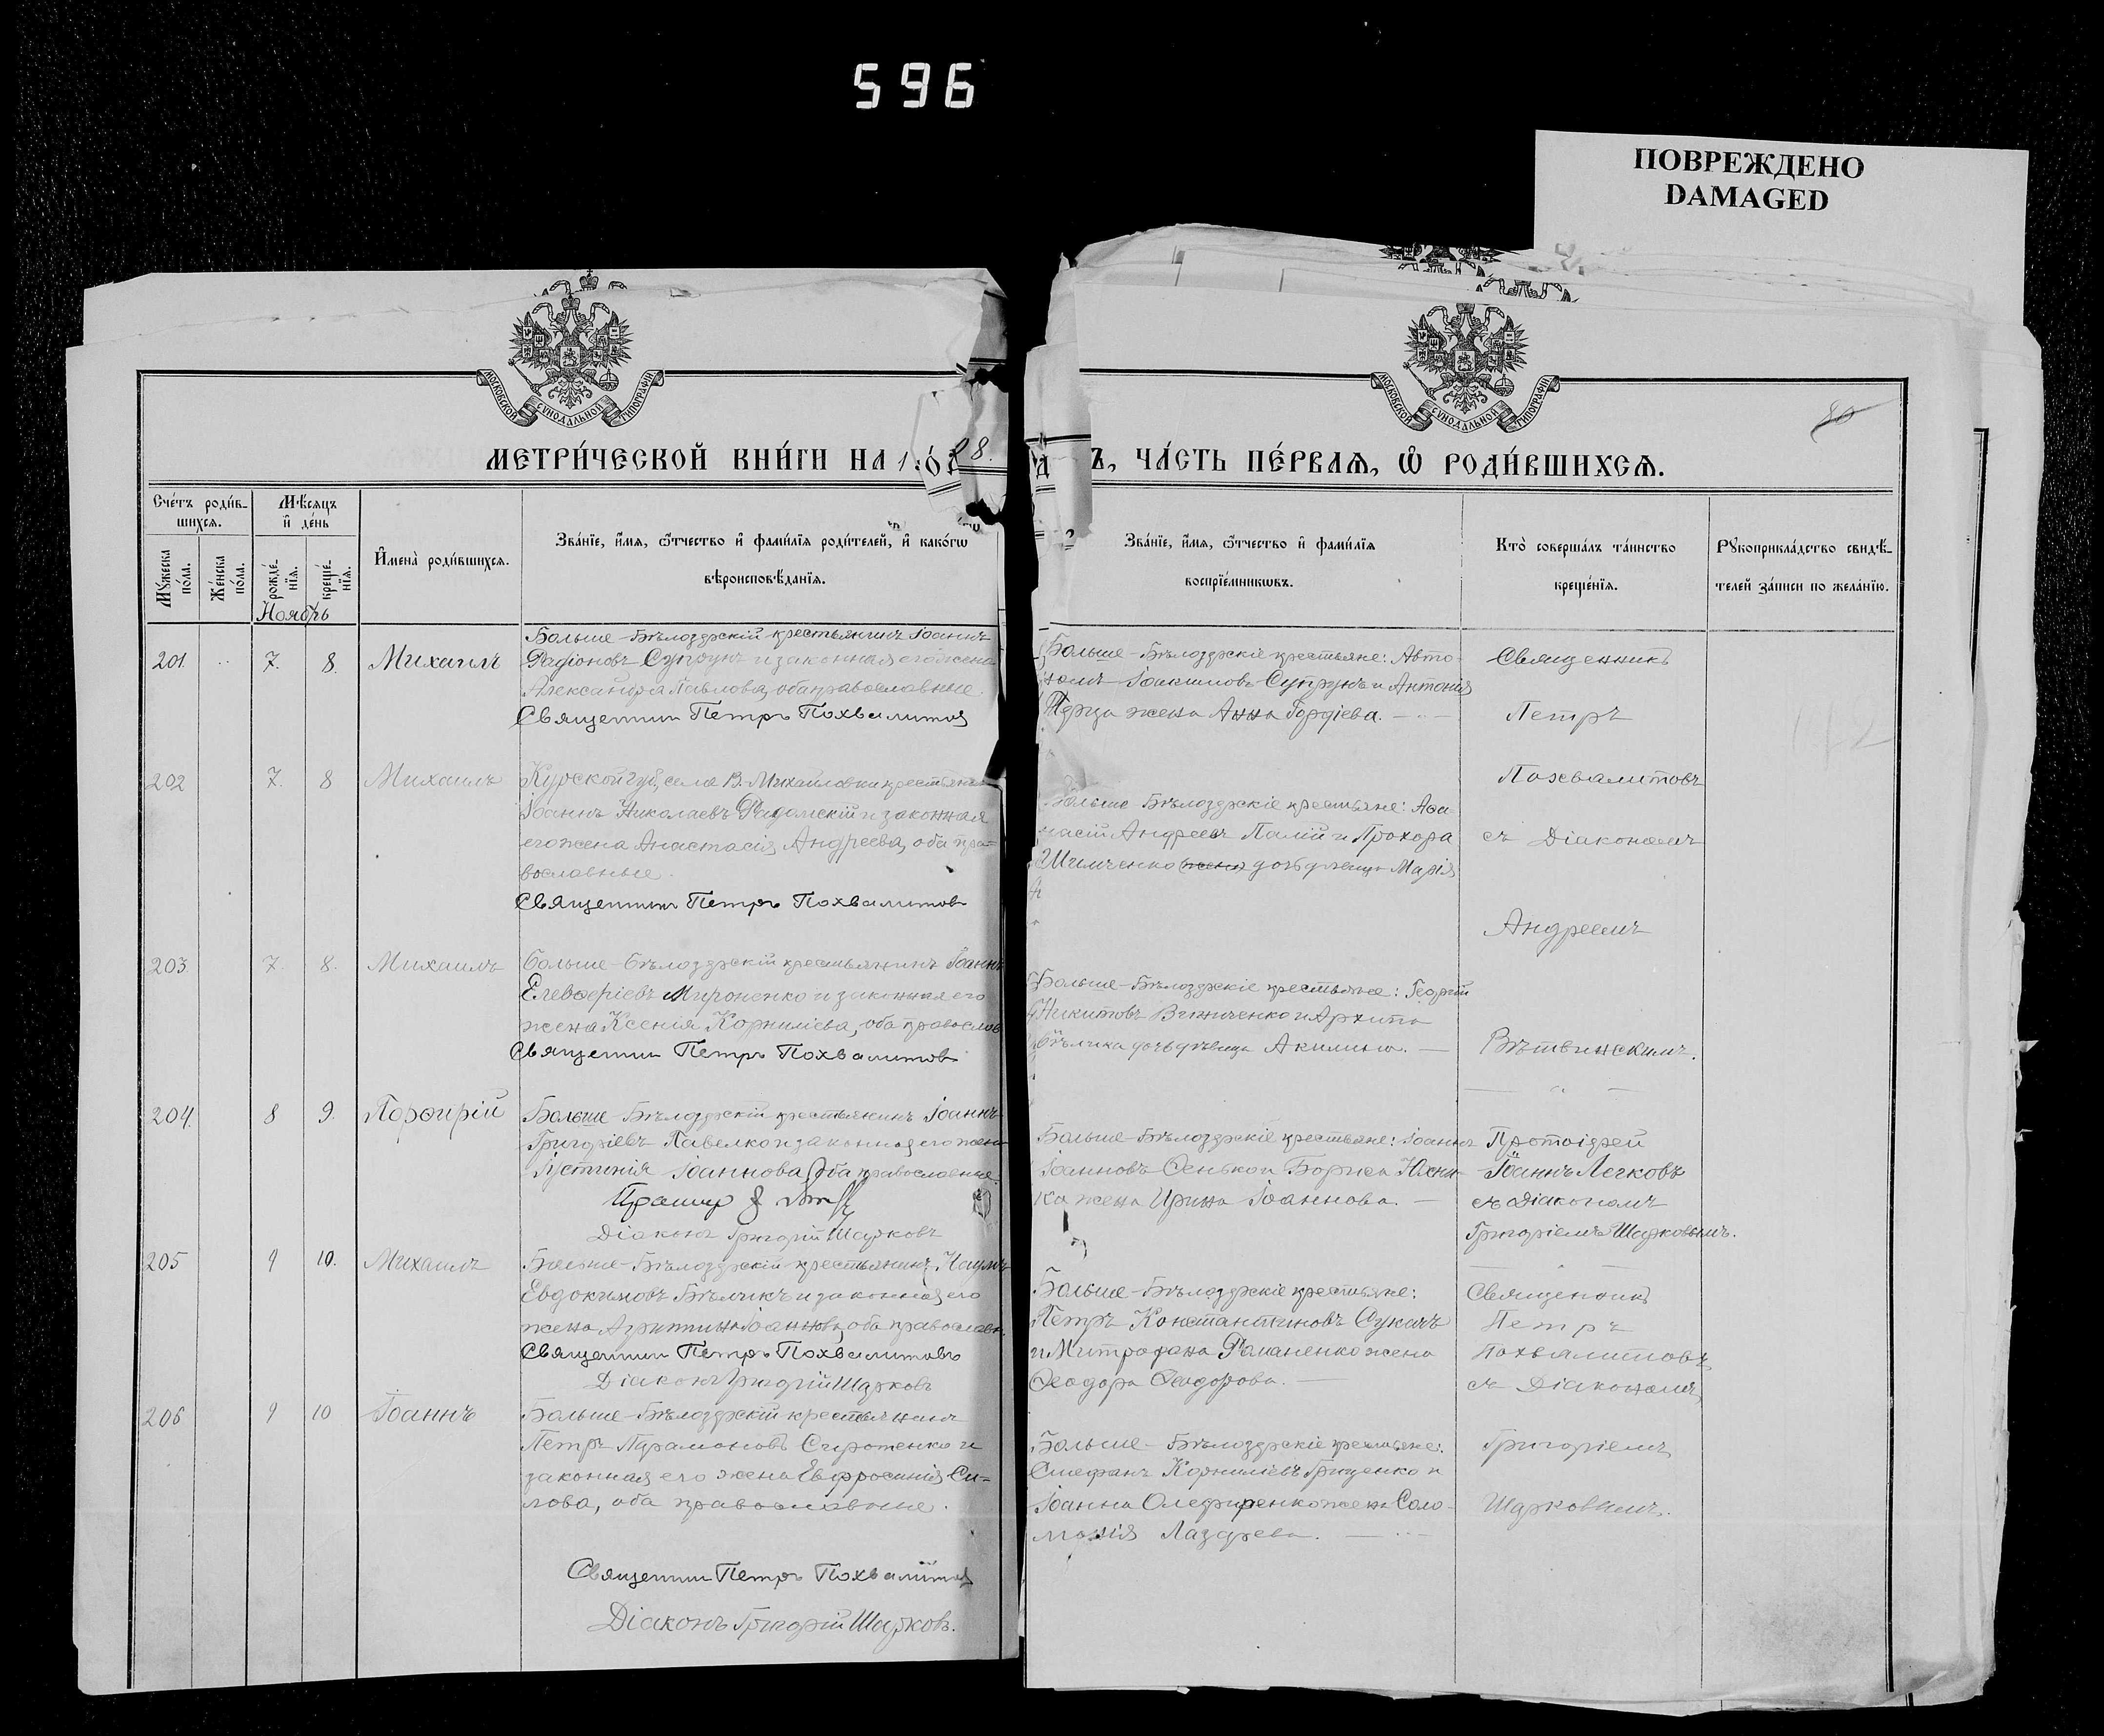 596
ПОВРЕЖДЕНО
DAMAGED
МОСКОВСКОЙ СѴНОДАЛЬНОЙ ТИПОГРАФІИ
МОСКОВСКОЙ СѴНОДАЛЬНОЙ ТИПОГРАФІИ
80
МЕТРИ́ЧЕСКОЙ КНИ́ГИ НА 28.
Ъ, ЧА́СТЬ ПЕ́РВАѦ, Ѡ҆ РОДИ́ВШИХСѦ.
Сче́тъ роди́в-
шихсѧ.
Мѣ́сѧцъ
и҆ де́нь
Мꙋ́жеска
по́ла.
Же́нска
по́ла.
рожде́-
нїѧ.
креще́-
нїѧ.
И҆мена̀ роди́вшихсѧ.
Зва́нїе, и҆́мѧ, ѻ҆́тчество и҆ фами́лїѧ роди́телей, и҆ како́гѡ
вѣроисповѣ́данїѧ.
Зва́нїе, и҆́мѧ, ѻ҆́тчество и҆ фами́лїѧ
воспрїе́мникѡвъ.
Кто̀ соверша́лъ та́инство
креще́нїѧ.
Рꙋкоприкла́дство свидѣ́-
телей за́писи по жела́нїю.
Ноябрь
201. 7. 8. Михаилъ
Больше-Бѣлозерскій крестьянинъ Іоаннъ
Родіоновъ Супрунъ и законная его жена
Александра Павлова, оба православные.
Священник Петръ Похвалитов
Больше-Бѣлозерскіе крестьяне: Авто-
номъ Іоакимовъ Супрунъ и Антонія
жена Анна Гордіева.
Священникъ
Петръ
Похвалитовъ
съ Діакономъ
Андреемъ
Вѣтвинскимъ.
202 7. 8 Михаилъ
Курской губ., села В.-Михайловки крестьянинъ
Іоаннъ Николаевъ и законная
его жена Анастасія Андреева, оба пра-
вославные.
Священник Петръ Похвалитов
Больше-Бѣлозерскіе крестьяне: Аѳа-
насій Андреевъ Палій и Прохора
Шимченко жена дочь дѣвица Марія
203. 7. 8. Михаилъ
Больше-Бѣлозерскій крестьянинъ Іоаннъ
Елевѳеріевъ Мироненко и законная его
жена Ксенія Корниліева, оба православ
Священник Петръ Похвалитов
Больше-Бѣлозерскіе крестьяне: Георгій
Никитовъ Винниченко и Архипа
Бѣлика дочь дѣвица Акилина.
204. 8 9. Порфирій
Больше-Бѣлозерскій крестьянинъ Іоаннъ
Григоріевъ Павелко и законная его жена
Іустинія Іоаннова, оба православные.
Діаконъ Григорій Шарковъ
Больше-Бѣлозерскіе крестьяне: Іоаннъ
Іоанновъ Сенько и Бориса
ка жена Ирина Іоаннова.
Протоіерей
Іоаннъ Легковъ
съ Діакономъ
Григоріемъ Шарковымъ.
205 9 10. Михаилъ
Больше-Бѣлозерскій крестьянинъ Наумъ
Евдокимовъ Бѣликъ и законная его
жена Агриппина Іоаннова, оба православн.
Священник Петръ Похвалитовъ
Діаконъ Григорій Шарковъ
Больше-Бѣлозерскіе крестьяне:
Петръ Константиновъ Сукачъ
и Митрофана Романенко жена
Ѳеодора Ѳеодорова.
Священникъ
Петръ
Похвалитовъ
съ Діакономъ
Григоріемъ
Шарковымъ.
206 9 10 Іоаннъ
Больше-Бѣлозерскій крестьянинъ
Петръ Парамоновъ Сиротенко и
законная его жена Евфросинія Си-
лова, оба православные.
Священник Петръ Похвалитов
Діаконъ Григорій Шарковъ.
Больше-Бѣлозерскіе крестьяне:
Стефанъ Корниліевъ Гриценко и
Іоанна Олефиренко жена Соло-
монія Лазарева.